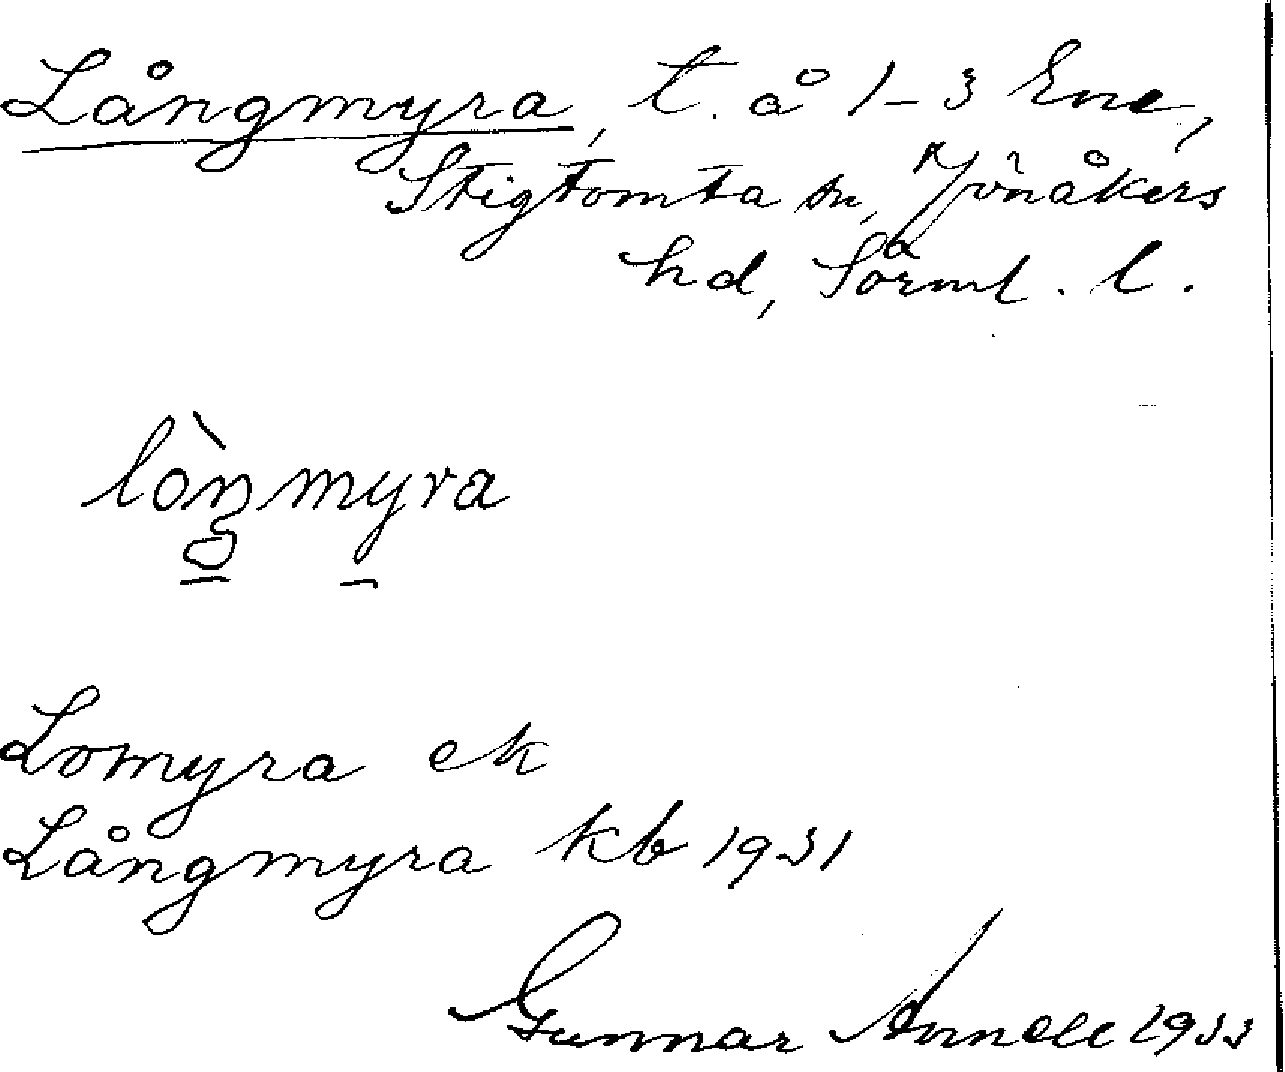 Långmyra, t. å 1–3 Ene,
Stigtomta sn, Jönåkers
hd, Sörml. l.
lòŋmyra
Lomyra ek
Långmyra kb 1931
Gunnar Arnell 1933